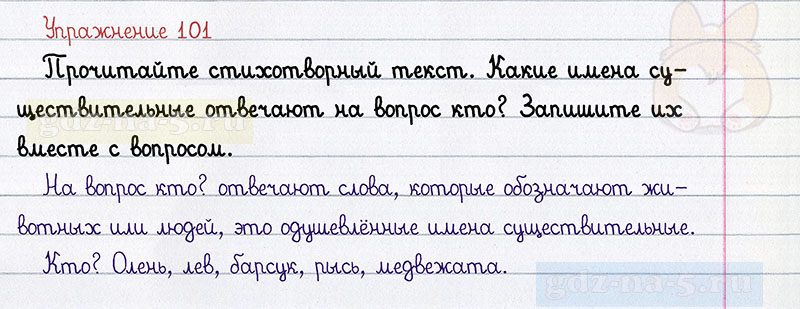 Упражнение 101
Прочитайте стихотворный текст. Какие имена су-
ществительные отвечают на вопрос кто? Запишите их
вместе с вопросом.
На вопрос кто? отвечают слова, которые обозначают жи-
вотных или людей, это одушевлённые имена существительные.
Кто? Олень, лев, барсук, рысь, медвежата.
gdz-na-5.ru
gdz-na-5.ru